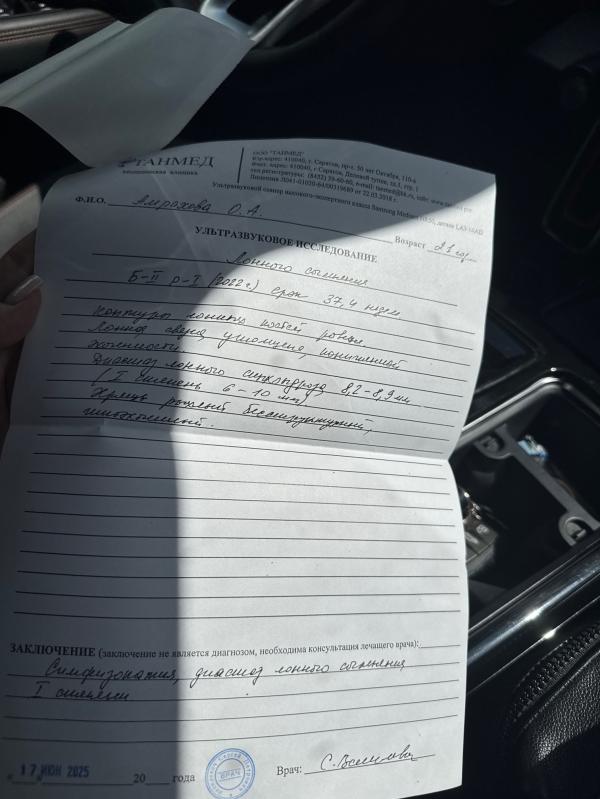 ТАНМЕД
медицинская клиника
ООО "ТАНМЕД"
Юр.адрес: 410040, г. Саратов, пр-т. 50 лет Октября, 110-а
Факт. адрес: 410040, г Саратов, Деловой тупик, зд.3, стр. 1
тел регистратуры: (8452) 39-60-60, e-mail:
Лицензия Л041-01020-64/00319689 от 22.03.2018 г.
Ультразвуковой сканер высокого-экспертного класса Samsung Medison
Ф.И.О. О.А. Возраст 21 год
УЛЬТРАЗВУКОВОЕ ИССЛЕДОВАНИЕ
Лонного сочленения
Б-II Р-I (2022 г.) срок 37,4 недели
Контуры лонных костей ровные
Лонная связка утолщена, пониженной
эхогенности
Диастаз лонного 8,2-8,9 мм
(I степень 6-10 мм)
Хрящ рыхлый бесструктурный,
гипоэхогенный.
ЗАКЛЮЧЕНИЕ (заключение не является диагнозом, необходима консультация лечащего врача):
Симфизопатия, диастаз лонного сочленения
I степени
17 ИЮН 2025 20 года
ВРАЧ
Врач: